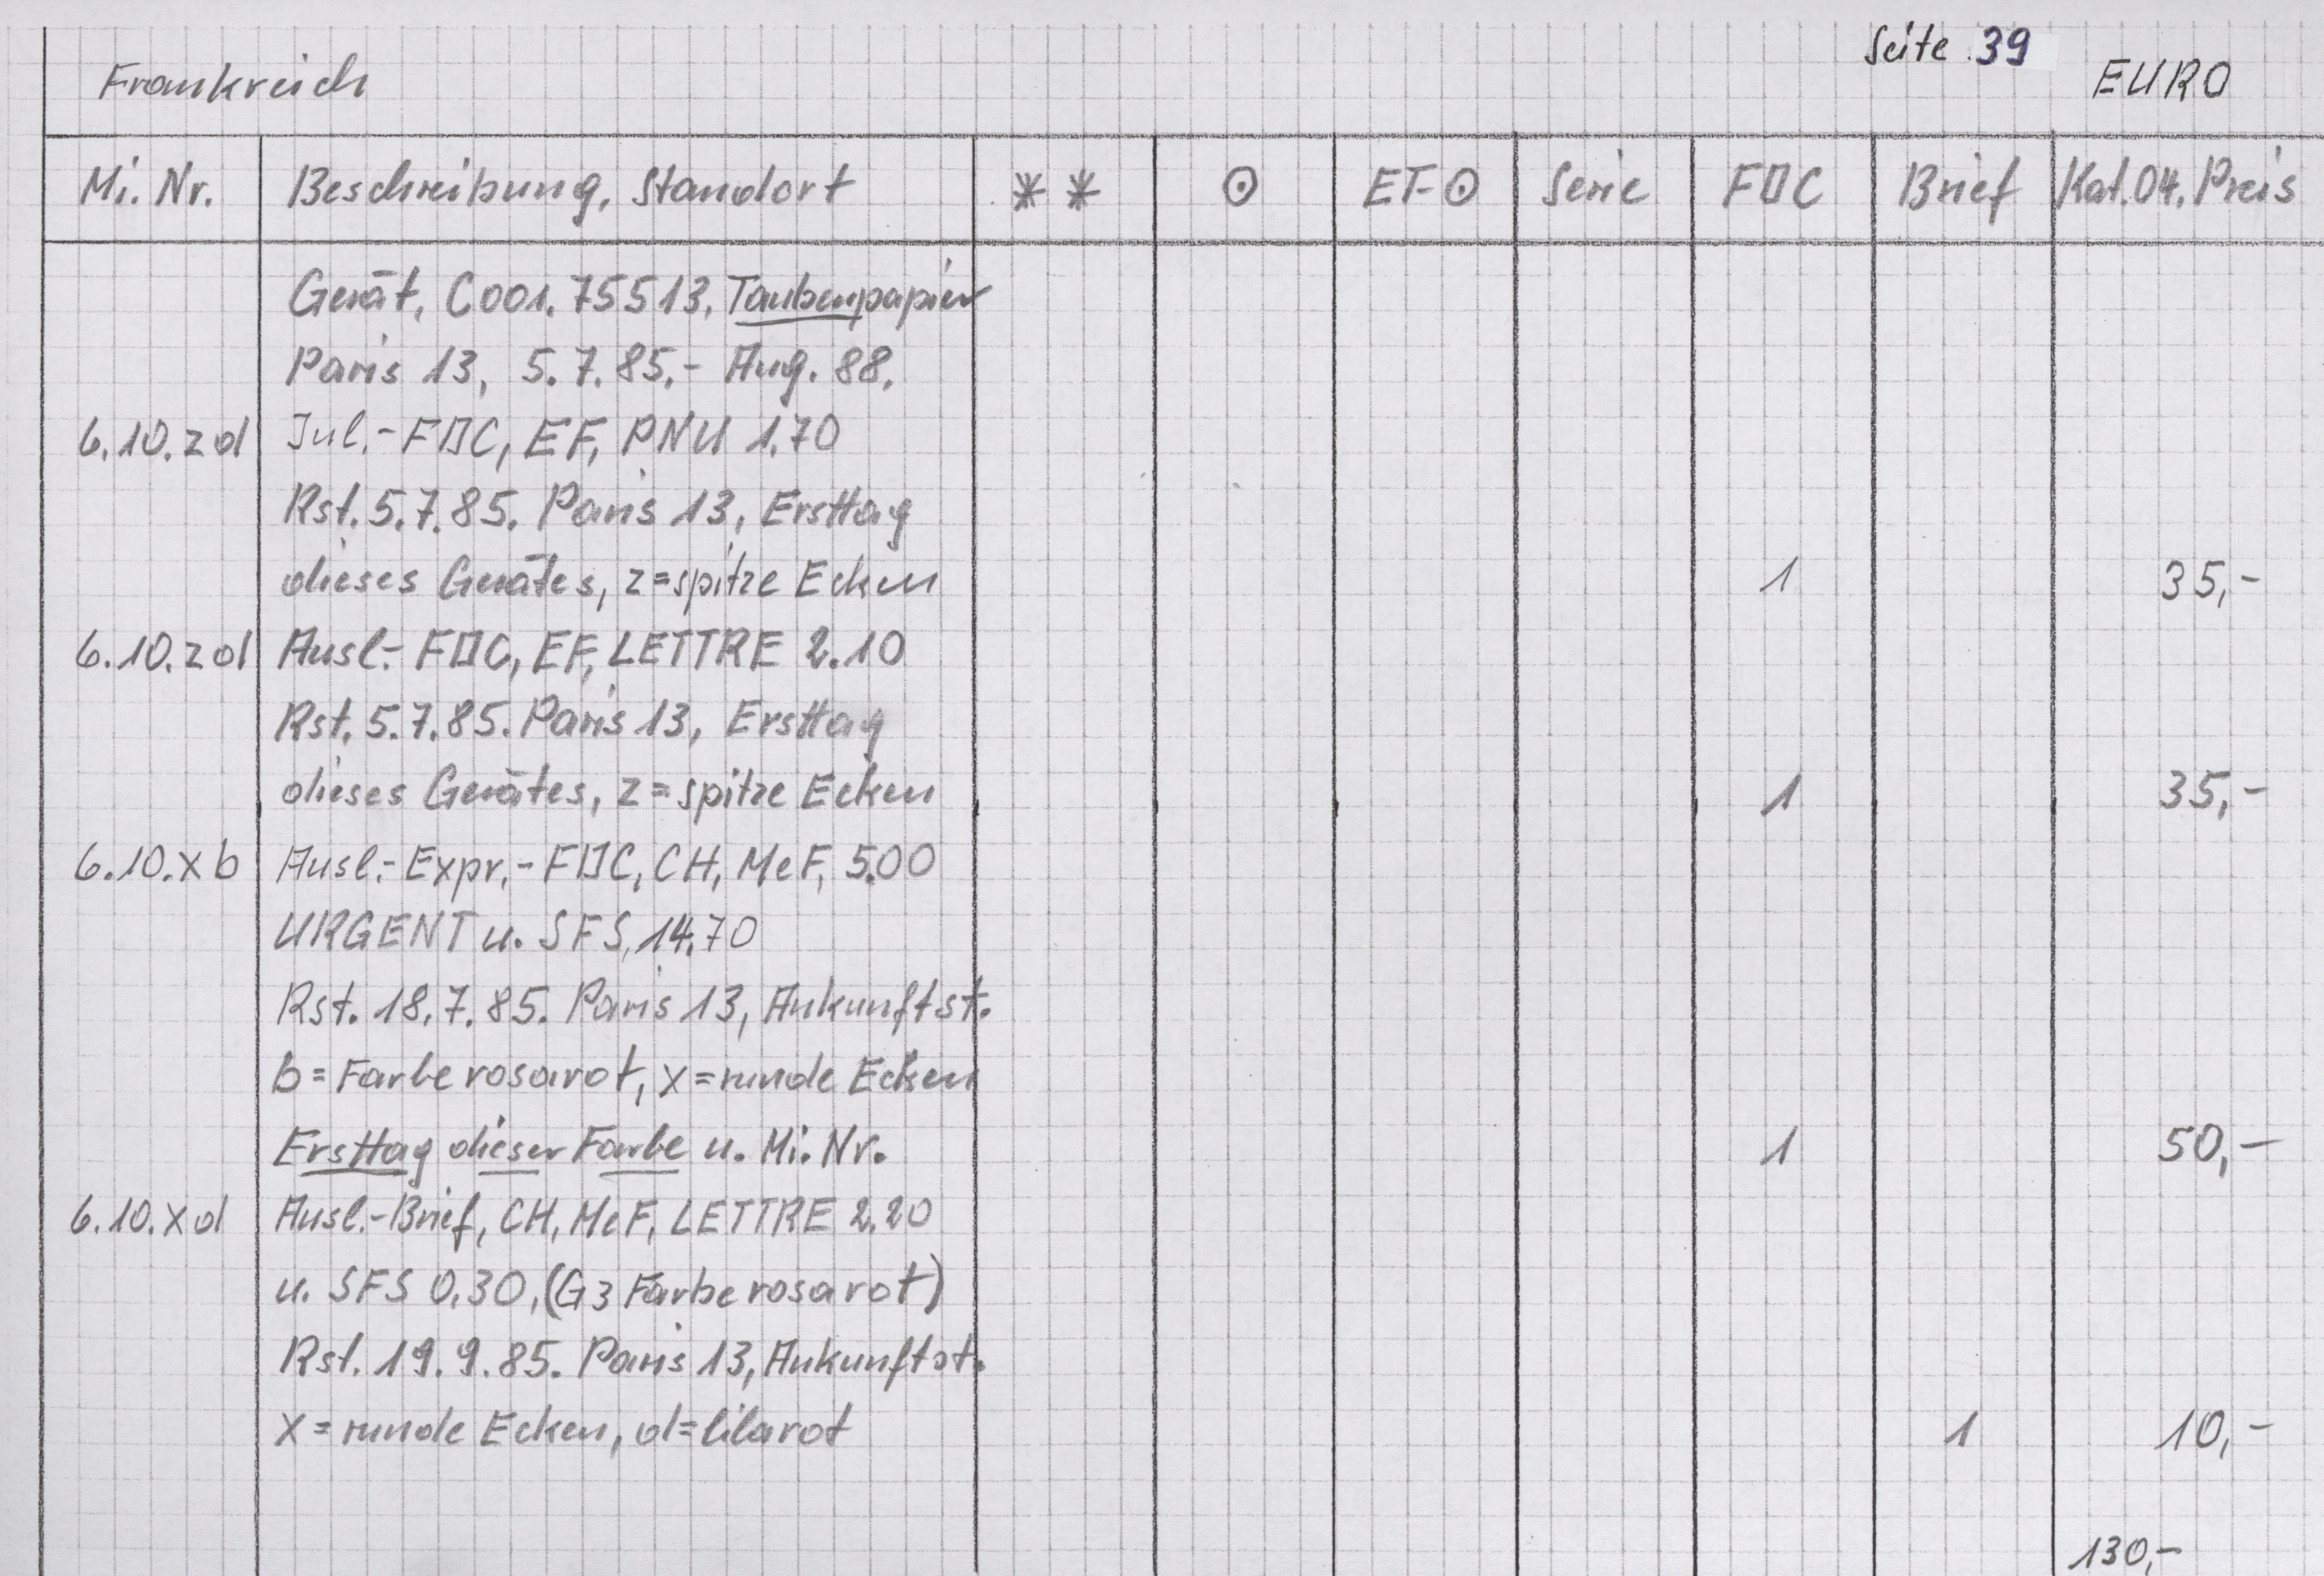 Seite 39
Frankreich EURO
Mi. Nr. Beschreibung, Standort ** ⊙ ET-⊙ Serie F▯C Brief Kat. 04. Preis
Gerät, C001. 75513, Taubenpapier
Paris 13, 5.7.85.- Aug. 88.
6.10.zd Inl.-F▯C, EF, PNU 1.70
Rst. 5.7.85. Paris 13, Ersttag
dieses Gerätes, z=spitze Ecken 1 35,-
6.10.zd Ausl.- F▯C, EF, LETTRE 2.10
Rst. 5.7.85. Paris 13, Ersttag
dieses Gerätes, z=spitze Ecken 1 35,-
6.10.xb Ausl.-Expr.-F▯C, CH, MeF, 5.00
URGENT u. SFS, 14.70
Rst. 18.7.85. Paris 13, Ankunftst.
b=Farbe rosarot, x=runde Ecken
Ersttag dieser Farbe u. Mi. Nr. 1 50,-
6.10.xd Ausl.-Brief, CH, MeF, LETTRE 2.20
u. SFS 0.30, (G3 Farbe rosarot)
Rst. 19.9.85. Paris 13, Ankunftst.
x=runde Ecken, d=lilarot 1 10,-
130,-